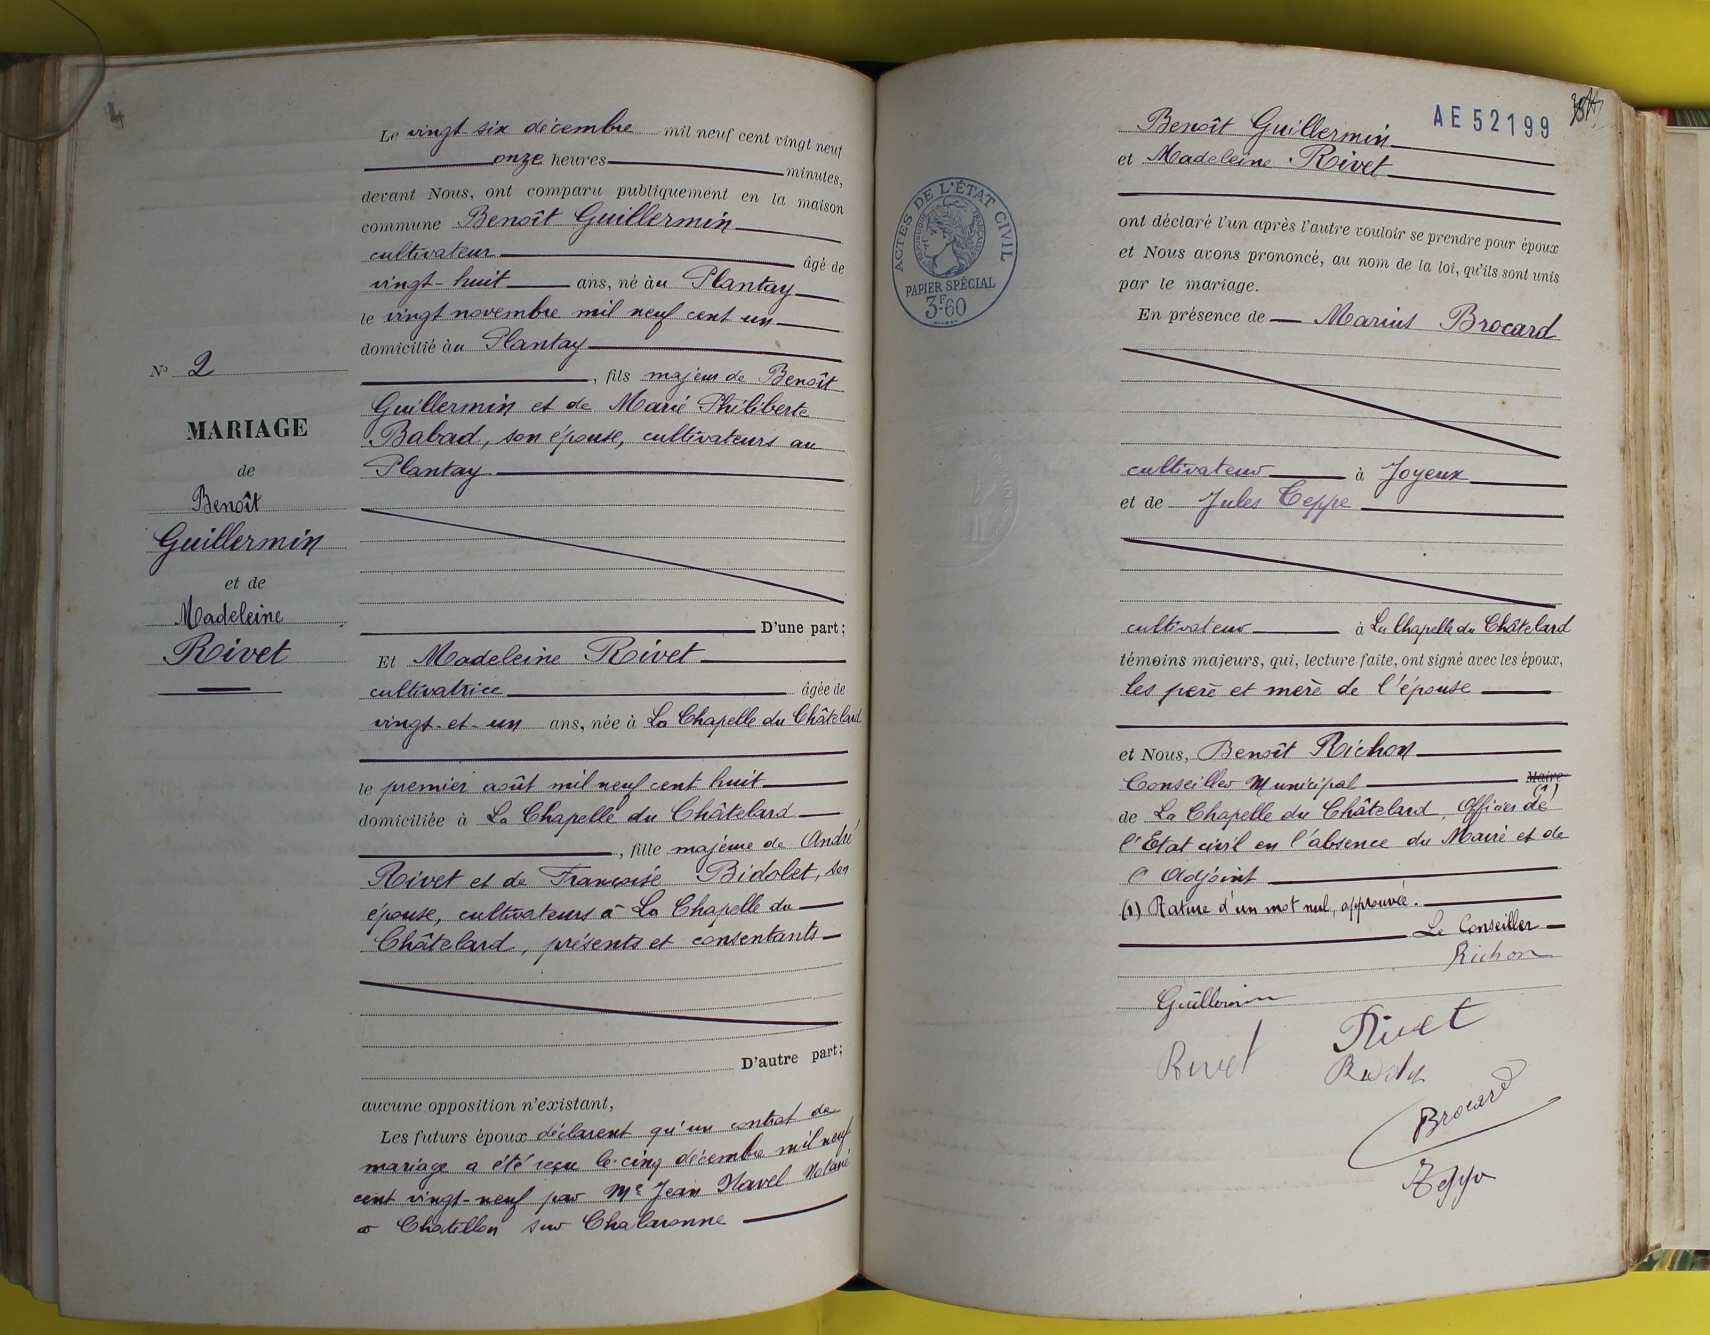 4
Le vingt six décembre mil neuf cent vingt neuf
onze heures minutes,
devant Nous, ont comparu publiquement en la maison
commune Benoît Guillermin
cultivateur âgé de
vingt-huit ans, né au Plantay
le vingt novembre mil neuf cent un
domicilié au Plantay
, fils majeur de Benoît
Guillermin et de Marie Philiberte
Babad, son épouse, cultivateurs au
Plantay
D'une part;
Nº 2
MARIAGE
de
Benoît
Guillermin
et de
Madeleine
Rivet
Et Madeleine Rivet
cultivatrice âgée de
vingt-et-un ans, née à La Chapelle du Châtelard
le premier août mil neuf cent huit
domiciliée à La Chapelle du Châtelard
, fille majeure de André
Rivet et de Françoise Bidolet, son
épouse, cultivateurs à La Chapelle du
Châtelard, présents et consentants
D'autre part;
aucune opposition n'existant,
Les futurs époux déclarent qu'un contrat de
mariage a été reçu le cinq décembre mil neuf
cent vingt-neuf par Me Jean Navel Notaire
à Chatillon sur Chalaronne
AE52199
ACTES DE L'ÉTAT CIVIL
PAPIER SPÉCIAL
3F.60
Benoît Guillermin
et Madeleine Rivet
ont déclaré l'un après l'autre vouloir se prendre pour époux
et Nous avons prononcé, au nom de la loi, qu'ils sont unis
par le mariage.
En présence de Marius Brocard
cultivateur à Joyeux
et de Jules Teppe
cultivateur à La Chapelle du Châtelard
témoins majeurs, qui, lecture faite, ont signé avec les époux,
les père et mère de l'épouse
et Nous, Benoît Richon
Conseiller Municipal Maire
(1)
de La Chapelle du Châtelard, Officier de
l'Etat civil en l'absence du Maire et de
l'Adjoint
(1) Rature d'un mot nul, approuvée.
Le Conseiller
Richon
Guillermin
Rivet Rivet
Brocard
Teppe